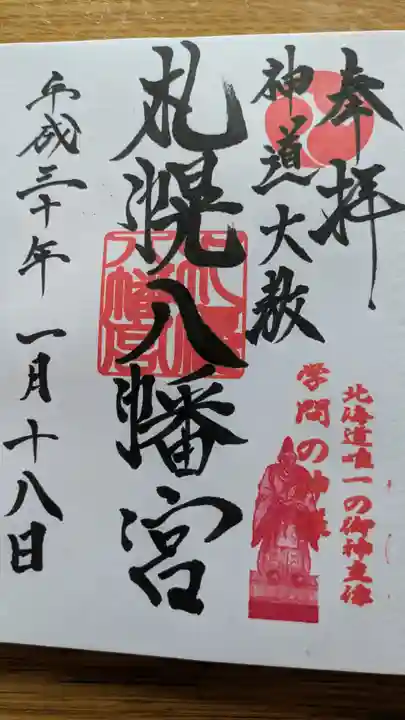 奉拝
神道大教
北海道唯一の御神主像
学問の神様
札幌八幡宮
札幌八幡宮
平成三十年 一月十八日